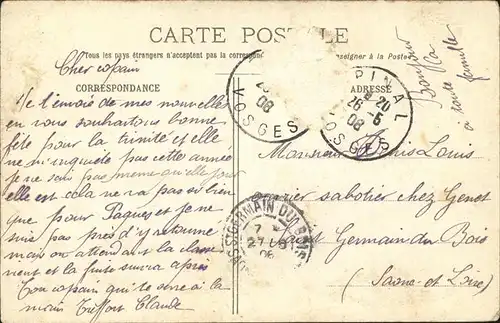 CARTE POSTALE
Tous les pays étrangers n'acceptent pas la correspon
enseigner à la Poste
CORRESPONDANCE
ADRESSE
Cher copain
Je t'envoie de mes nouvelles
en vous souhaitons bonne
fête pour la trinité et elle
ne m'inquiete pas cette année
je ne sai pas meme qu'elle jour
elle est cela ne va pas si bien
que pour Paques et je ne
suis pas près d'y retourné
mais on attendant la classe
vient et la fuite suivra après
Ton copain qui te serre la
main Treffort Claude
Bonjour
a toute
famille
EPINAL
20
26-5
08
VOSGES
08
VOSGES
Monsieur Denis Louis
ouvrier sabotier chez Genet
Saint Germain du Bois
(Saone-et-Loire)
ST GERMAIN DU BOIS
7
27
08